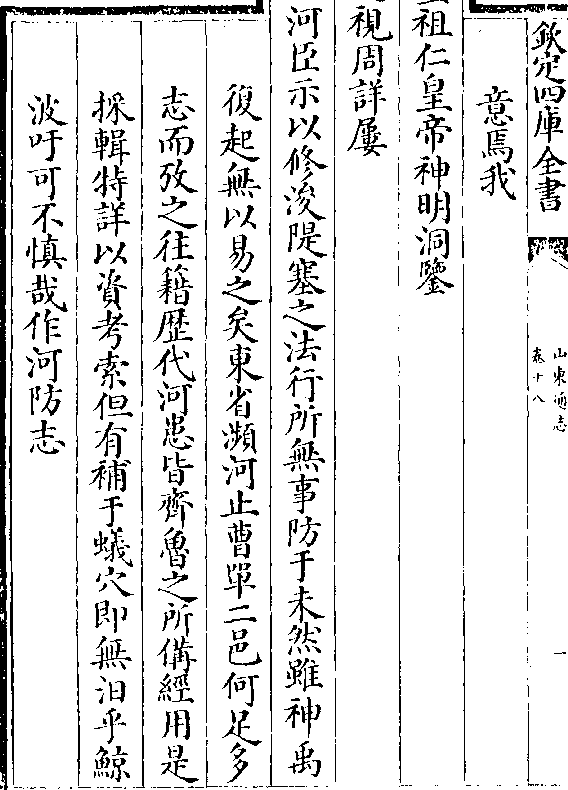 欽定四庫全書
山東通志
卷十八
一
意焉我
祖仁皇帝神明洞鑒
視周詳屢
河臣示以修浚隄塞之法行所無事防于未然雖神禹
復起無以易之矣東省瀕河止曹單二邑何足多
志而攷之往籍歴代河患皆齊魯之所備經用是
採輯特詳以資考索但有補于蟻穴即無汨乎鯨
波吁可不慎哉作河防志